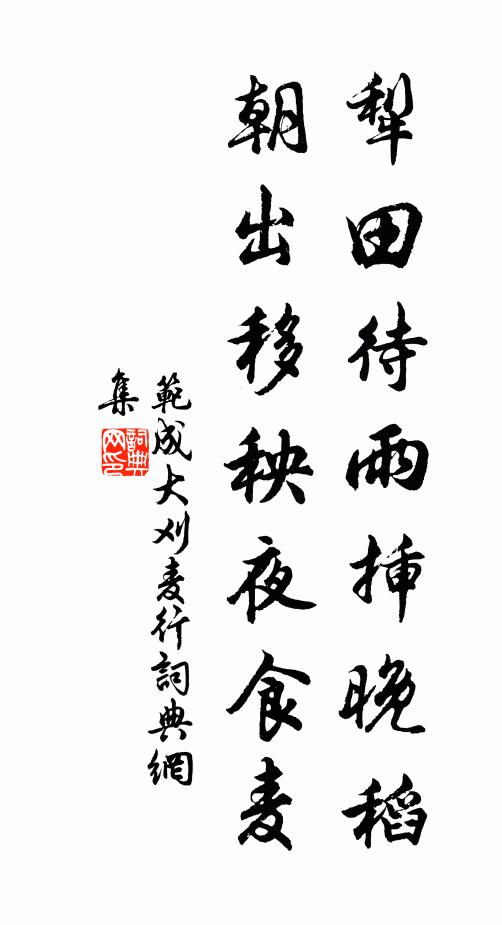 犁田待雨插晚稻
朝出移秧夜食麦
範成大刈麦行詞典網
集
詞典
网印